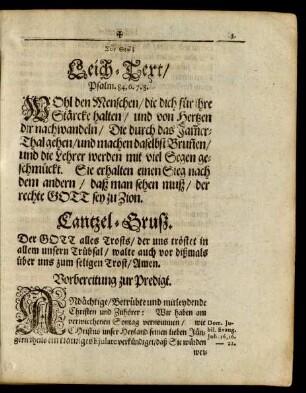 Leich-Text/
Psalm. 84. 6. 7. 8.
WOhl den Menschen/ die dich für ihre
Stärcke halten/ und von Hertzen
dir nachwandeln/ Die durch das Jamer-
Thal gehen/ und machen daselbst Brunnen/
und die Lehrer werden mit viel Segen ge-
schmückt. Sie erhalten einen Sieg nach
dem andern/ daß man sehen muß/ der
rechte GOTT sey zu Zion.
Cantzel-Gruß.
Der GOTT alles Trosts/ der uns tröstet in
allem unsern Trübsal/ walte auch vor dißmals
über uns zum seligen Trost/ Amen.
Vorbereitung zur Predigt.
ANdächtige/ Betrübte und mitleydende
Christen und Zuhörer: Wir haben am
verwichenen Sontag vernommen/ wie
CHristus unser Heyland seinen lieben Jün-
gern theils ein Ejulate verkündiget/ daß Sie würden
Dom. Ju-
bil. Evang.
Joh. 16, 16.
— 22.
wei-